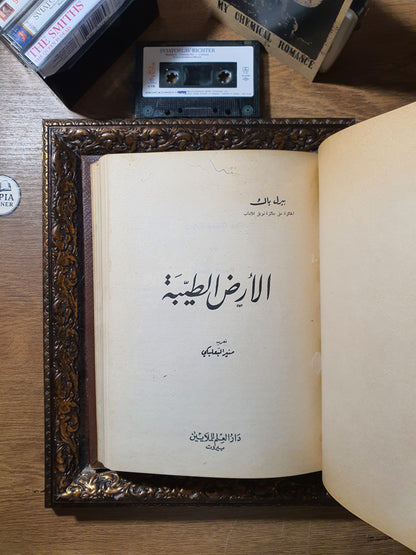 THE SMITHS
SVIATOSLAV RICHTER
MY CHEMICAL ROMANCE
بيرل باك
الحائزة على جائزة نوبل للآداب
الأرض الطيّبة
تعريب
منير البعلبكي
دار العلم للملايين
بيروت